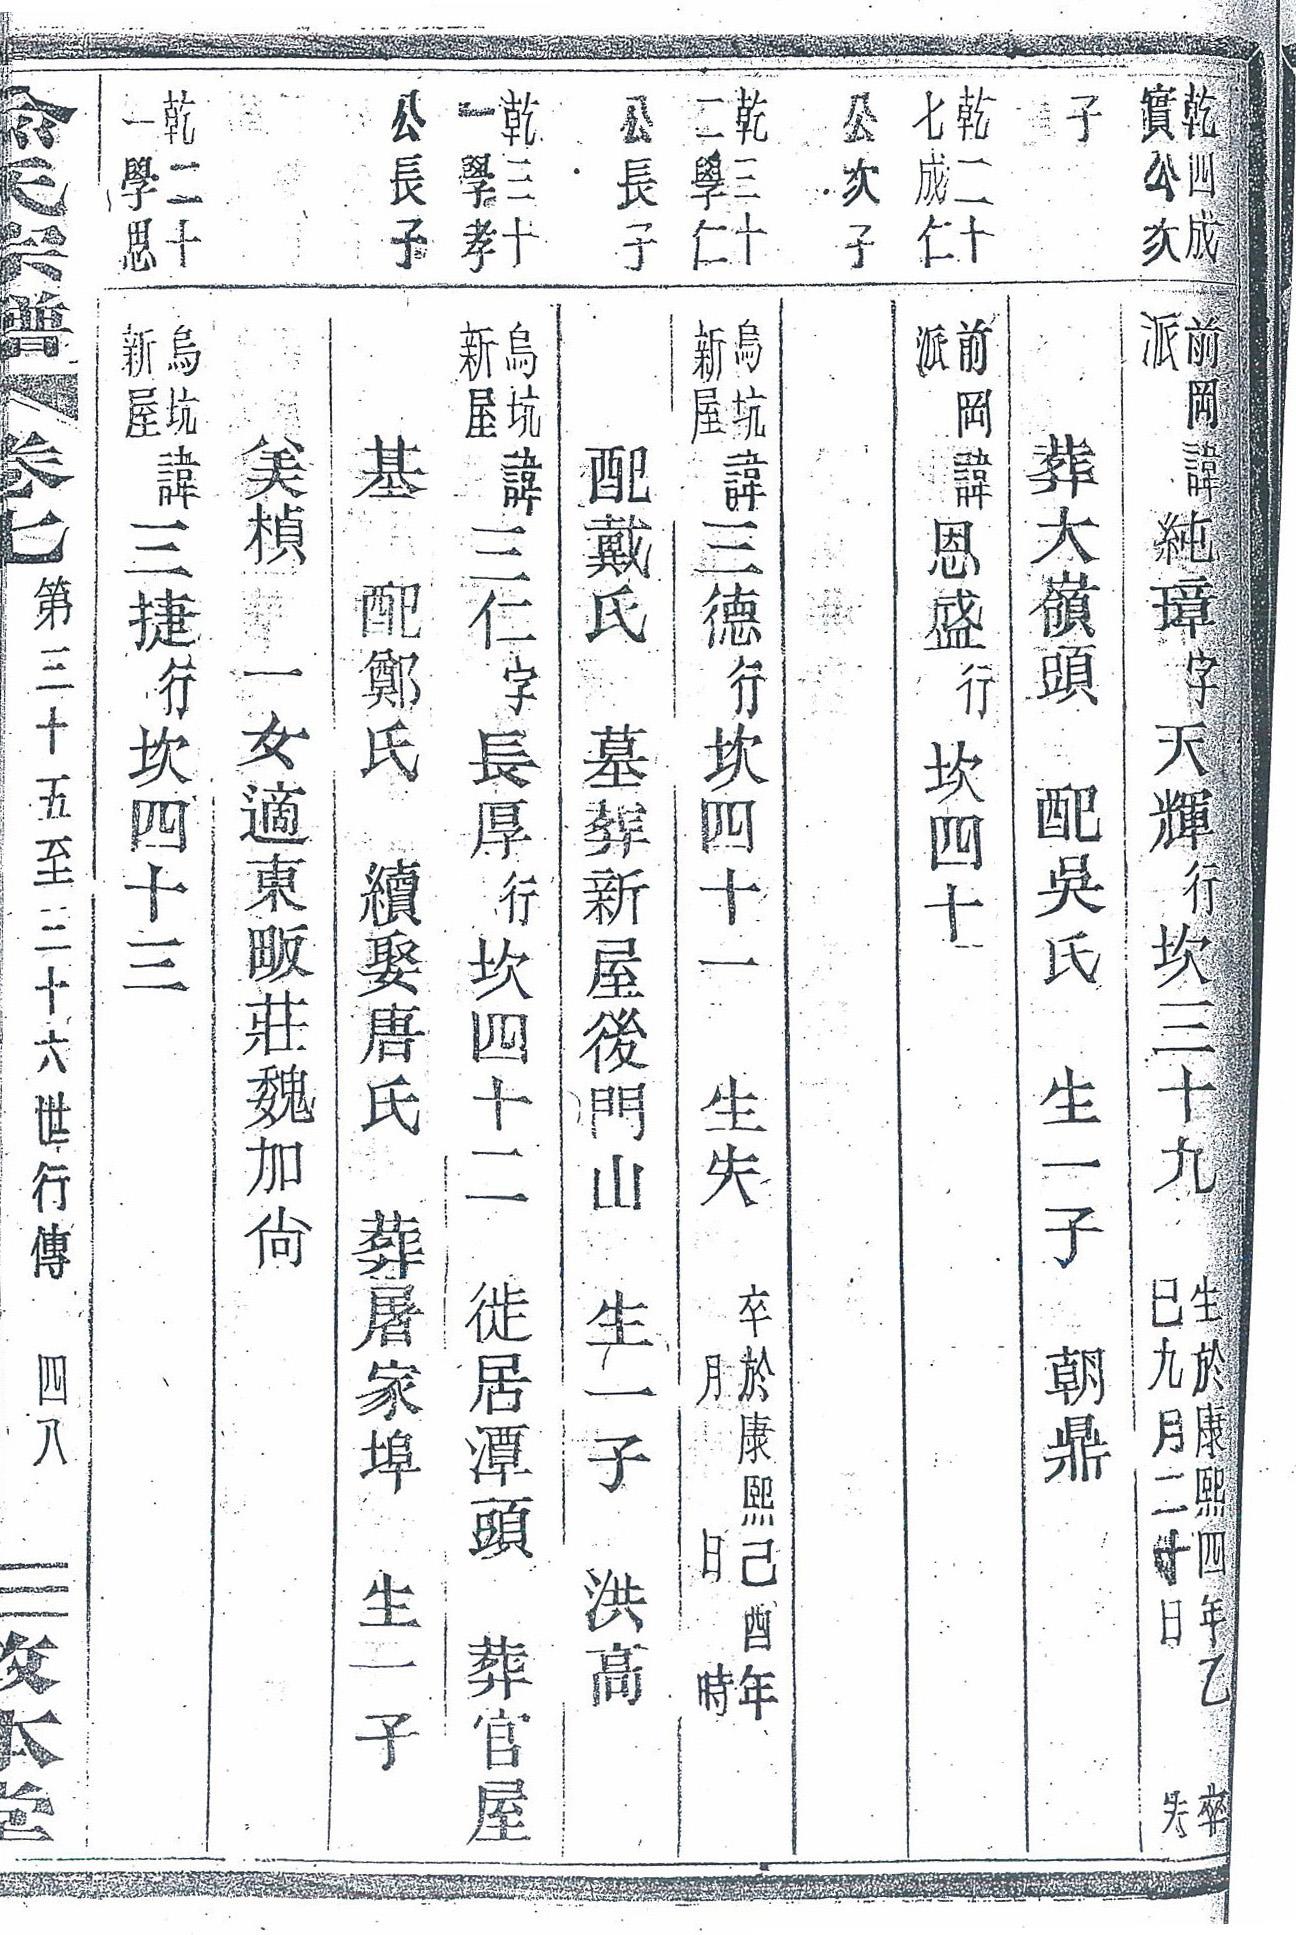 乾四成
實公次
前岡
派
諱純璋字天輝行坎三十九
生於康熙四年乙
巳九月二十日
卒
失
子
葬大嶺頭 配吳氏 生一子 朝鼎
乾二十
七成仁
前岡
派
諱恩盛行坎四十
公次子
乾三十
二學仁
烏坑
新屋
諱三德行坎四十一 生失
卒於康熙己酉年
月 日 時
公長子
配戴氏 墓葬新屋後門山 生一子 洪高
乾三十
一學孝
烏坑
新屋
諱三仁字長厚行坎四十二 徙居潭頭 葬官屋
公長子
基 配鄭氏 續娶唐氏 葬屠家埠 生一子
美楨 一女適東畈莊魏加尙
乾二十
一學思
烏坑
新屋
諱三捷行坎四十三
氏宗譜 卷七 第三十五至三十六世行傳 四八 本堂